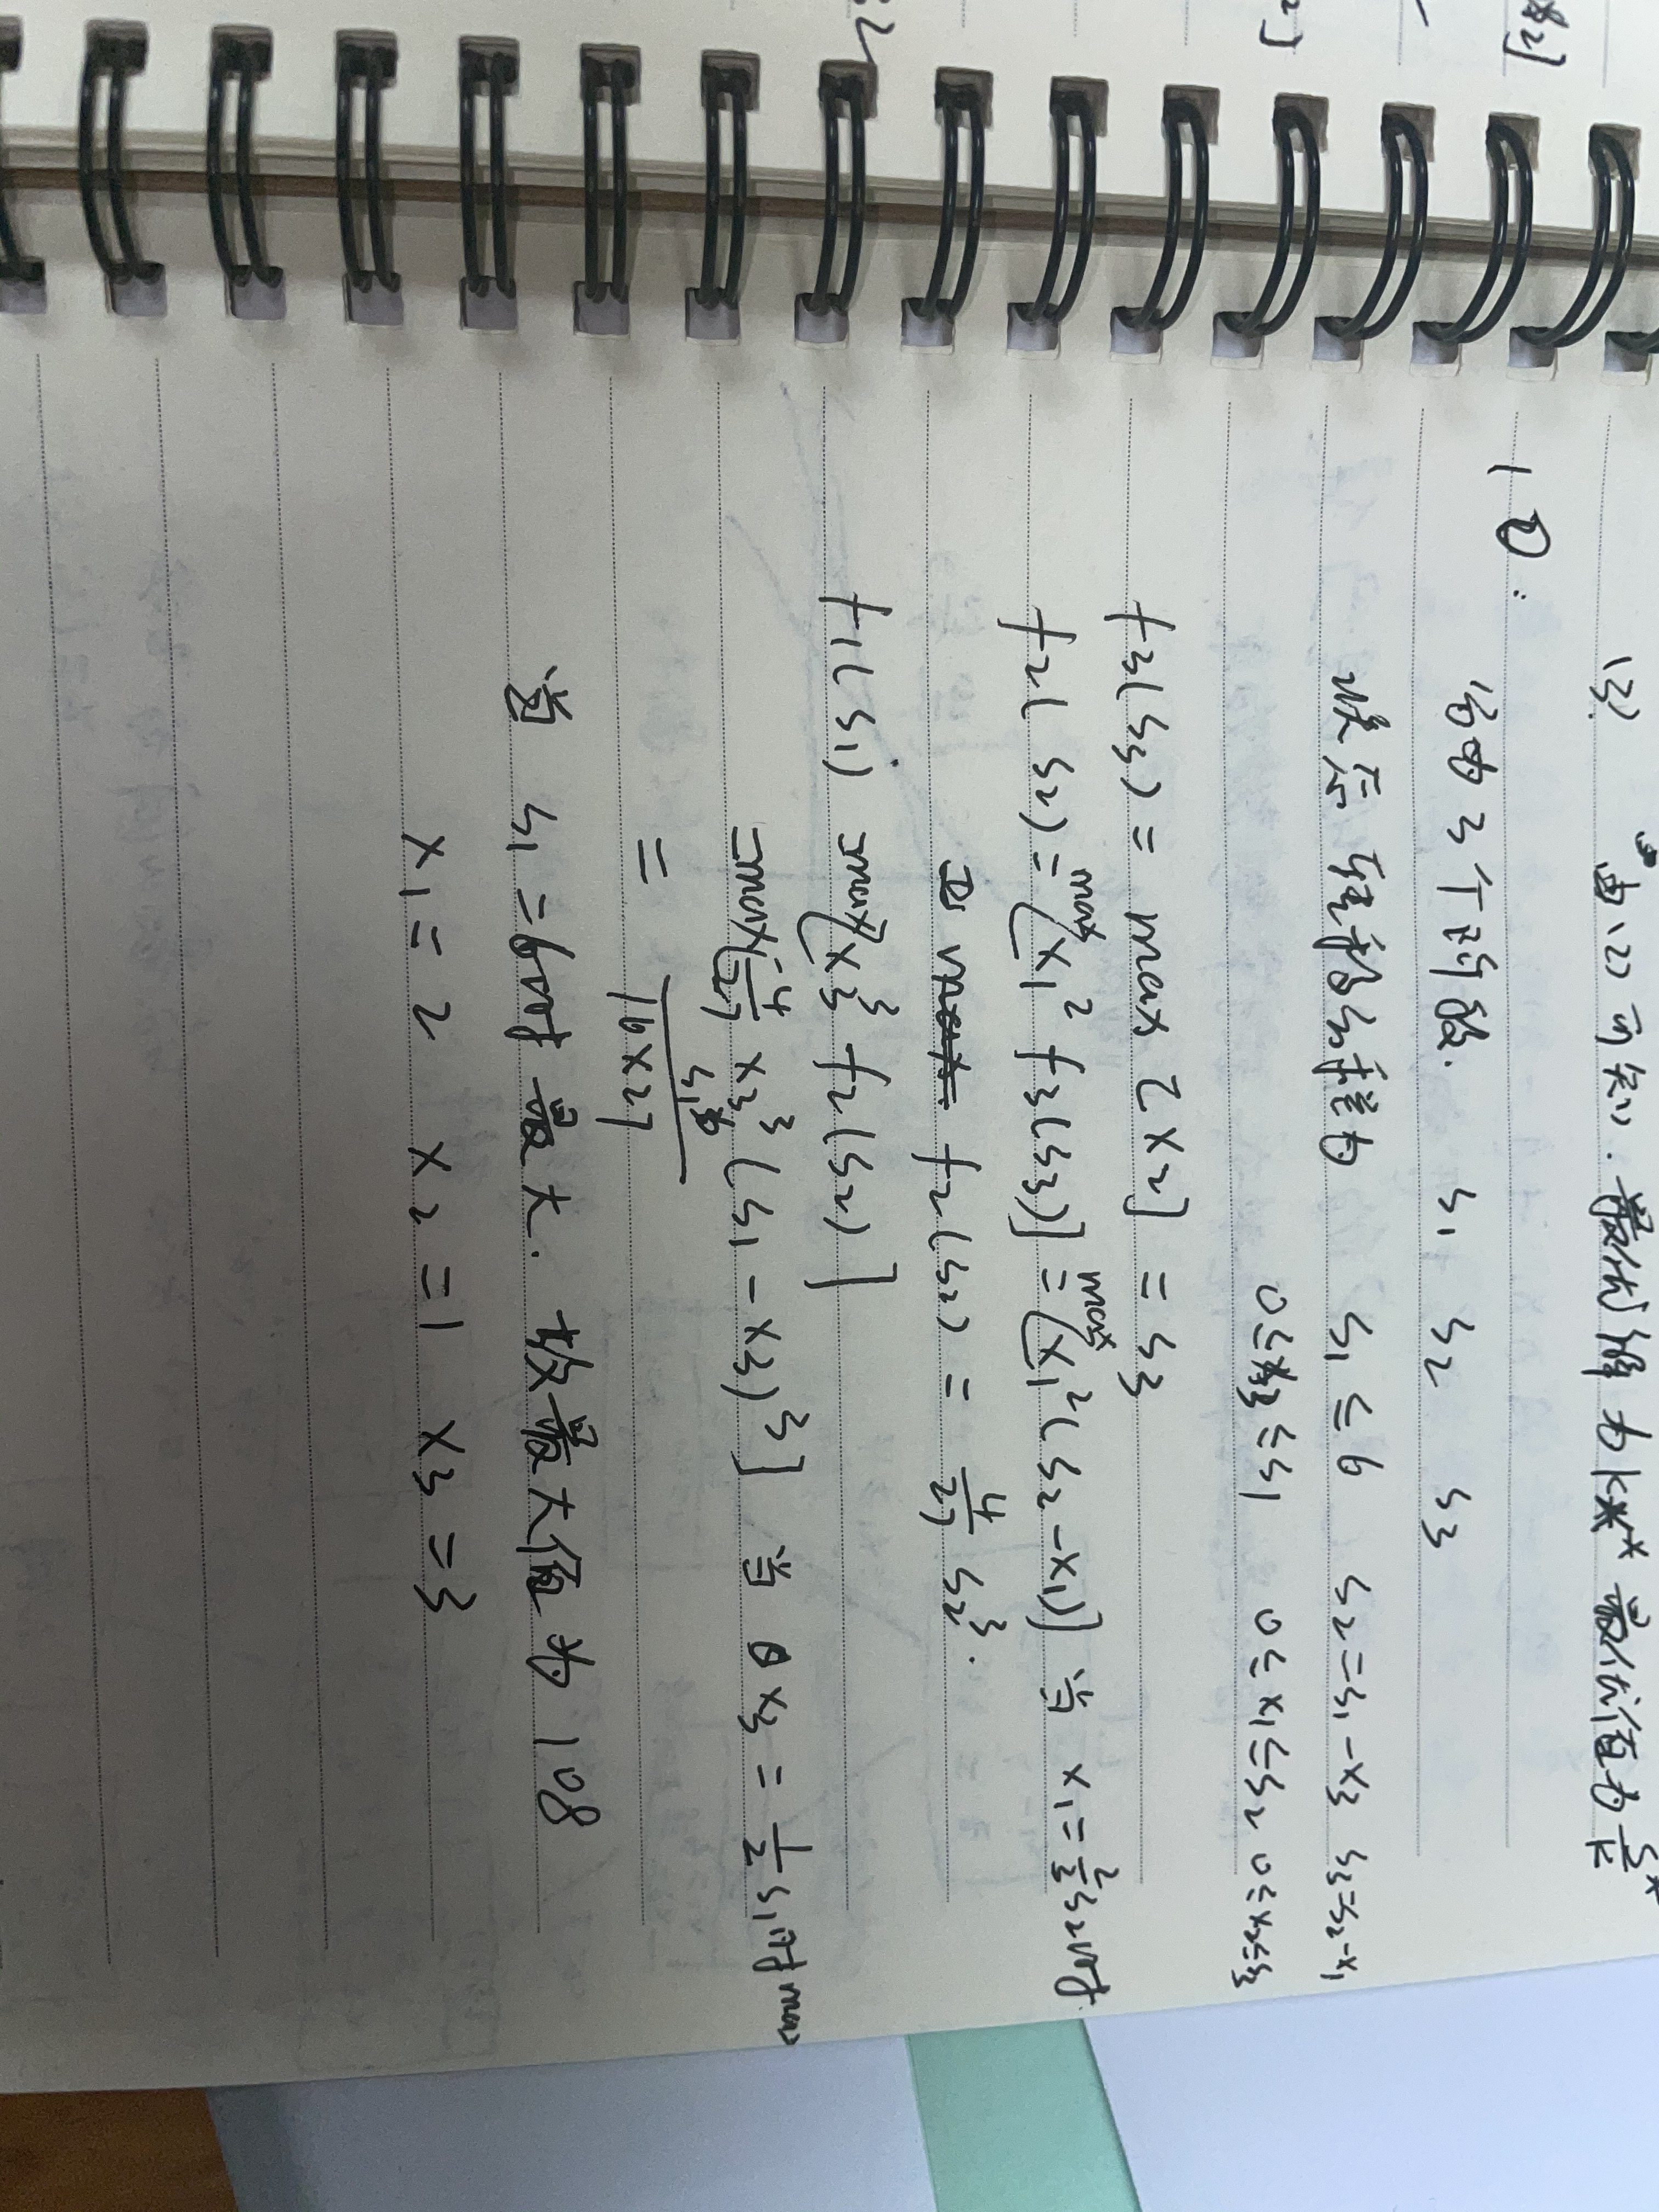 (3) 由(2)可知.最优解为k* 最优值为
10:
分为3个阶段. S1 S2 S3
状态转移方程为 S1≤6 S2=S1-x3 S3=S2-x1
0≤x3≤S1 0≤x1≤S2 0≤x2≤S3
f3(S3) = max[x2] = S3
f2(S2) = max[x1² f3(S3)] = max[x1²(S2-x1)] 当 x1=2/3 S2时
f2(S2) = 4/27 S2³.
f1(S1) = max[x3³ f2(S2)]
= max[4/27 x3³(S1-x3)³] 当 x3 = 1/2 S1时max
= S1⁶/(16×27)
当 S1=6时最大. 故最大值为108
x1=2 x2=1 x3=3